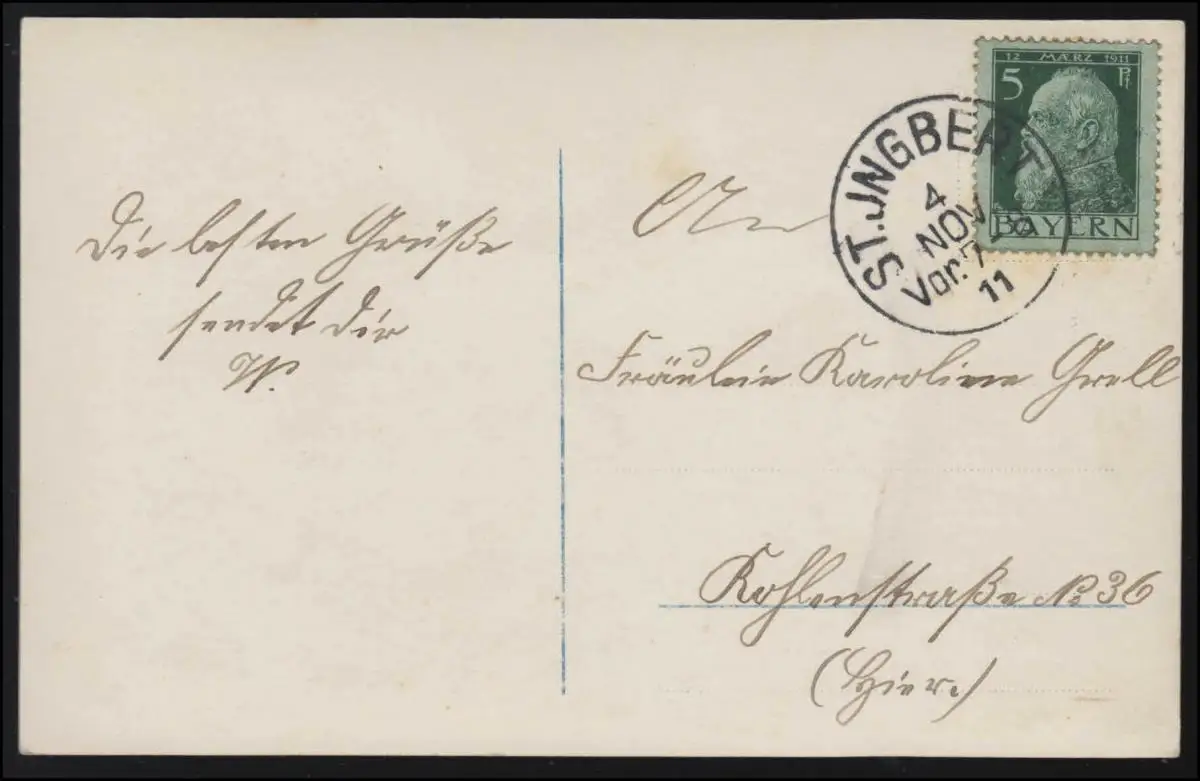 Die besten Grüße
sendet Dir
W.
12 MÆRZ 1911
5 Pf
BAYERN
ST. JNGBERT
4
NOV
Vor. 7
11
An
Fräulein Karoline Grell
Kohlenstraße No 36
(Hier.)